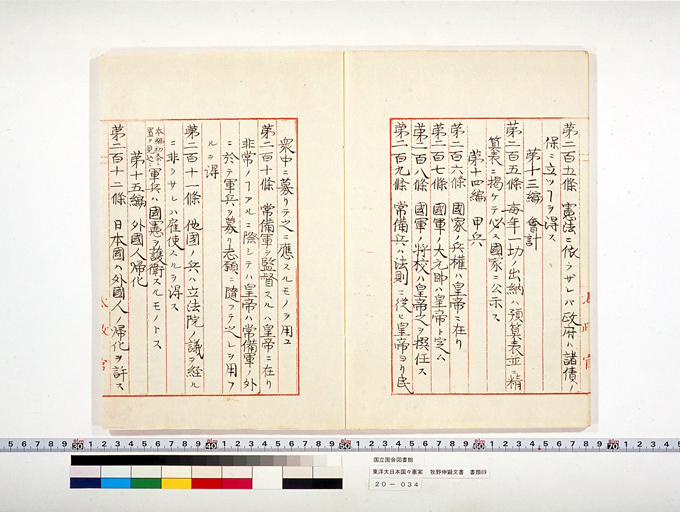 第二百五條 憲法ニ依ラザレバ政府ハ諸債ノ
保ニ立ツヿヲ得ス
第十三編 會計
第二百五條 毎年一切ノ出納ハ預算表並ニ精
算表ニ掲ケテ必ス國家ニ公示ス
第十四編 甲兵
第二百六條 國家ノ兵權ハ皇帝ニ在リ
第二百七條 國軍ノ大元帥ハ皇帝ト定ム
第二百八條 國軍ノ將校ハ皇帝之ヲ撰任ス
第二百九條 常備兵ハ法則ニ從ヒ皇帝ヨリ民
衆中ニ募リテ之ニ應スルモノヲ用ユ
第二百十條 常備軍ヲ監督スルハ皇帝ニ在リ
非常ノヿアルニ際シテハ皇帝ハ常備軍ノ外
ニ於テ軍兵ヲ募リ志願ニ隨フテ之レヲ用フ
ルヲ得
第二百十一條 他國ノ兵ハ立法院ノ議ヲ経ル
ニ非ラサレハ雇使スルヲ得ス
軍兵ハ國憲ヲ護衛スルモノトス
第十五編 外國人歸化
第二百十二條 日本國ハ外國人ノ歸化ヲ許ス
太政官
国立国会図書館
東洋大日本国々憲案 牧野伸顕文書 書類89
20-034